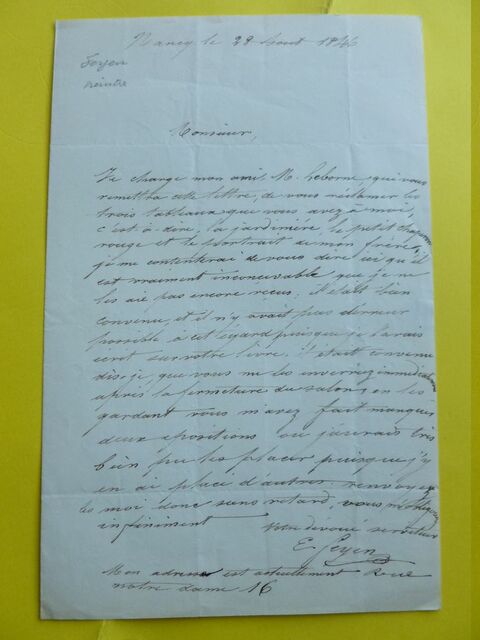 Nancy le 29 Aout 1846
Feyen
peintre
Monsieur,
Je charge mon ami M. Leborne, qui vous
remettra cette lettre, de vous réclamer les
trois tableaux que vous avez à moi,
c'est à dire, la jardinière, le petit chaperon
rouge et le portrait de mon frère,
je me contenterai de vous dire ici qu'il
est vraiment inconcevable que je ne
les aie pas encore reçus; il était bien
convenu, et il n'y avait pas d'erreur
possible à cet égard puisque je l'avais
écrit sur votre livre. il était convenu
dis-je que vous me les enverriez immédiatement
après la fermeture du salon, en les
gardant vous m'avez fait manquer
deux expositions où j'aurais très
bien pu les placer puisque j'y
en ai placé d'autres. renvoyez
les moi donc sans retard, vous m'obligerez
infiniment
Votre dévoué serviteur
E. Feyen
Mon adresse est actuellement Rue
notre dame 16